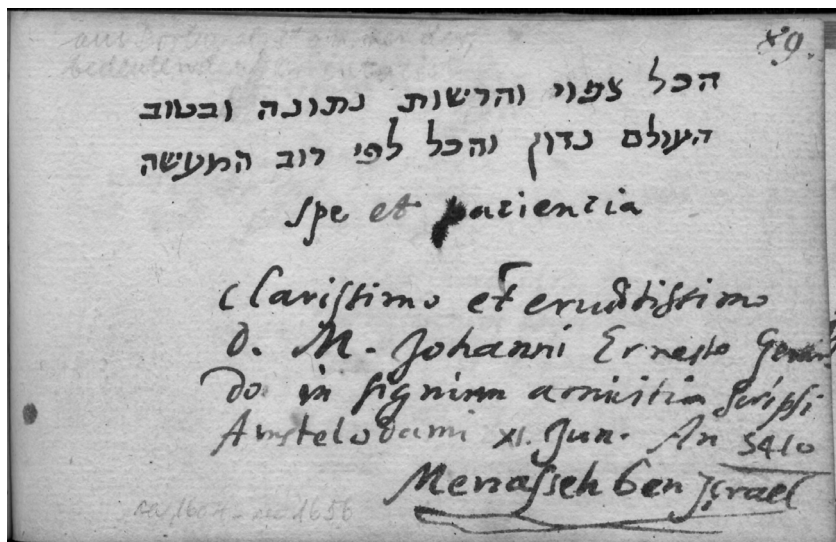 89.
הכל צפוי והרשות נתונה ובטוב
העולם נדון והכל לפי רוב המעשה
Spe et patientia
Clarissimo et eruditissimo
D. M. Johanni Ernesto Gerar
do in signum amicitiæ scripsi
Amstelodami XI. Jun. An 5410
Menasseh ben Israel
1656